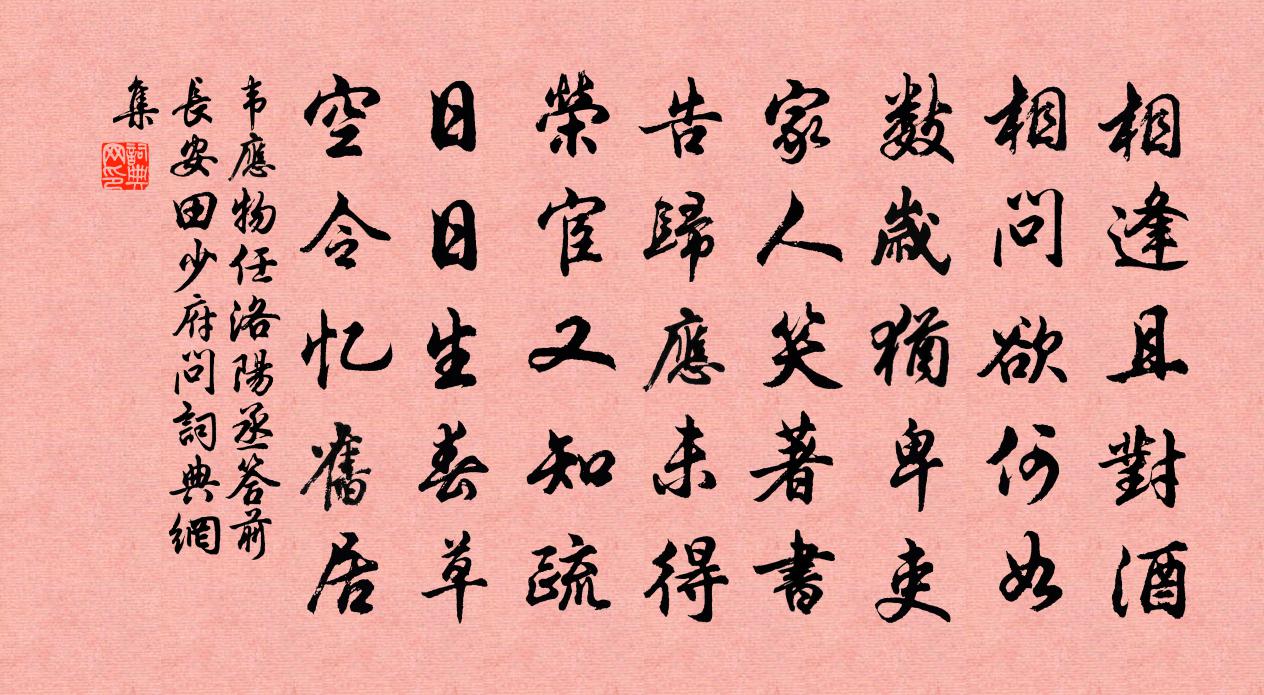 相逢且對酒
相問欲何如
數歲猶卑吏
家人笑著書
告歸應未得
榮宦又知疏
日日生春草
空令忆舊居
韦應物任洛陽丞答前
長安田少府問詞典網
集
詞典網印